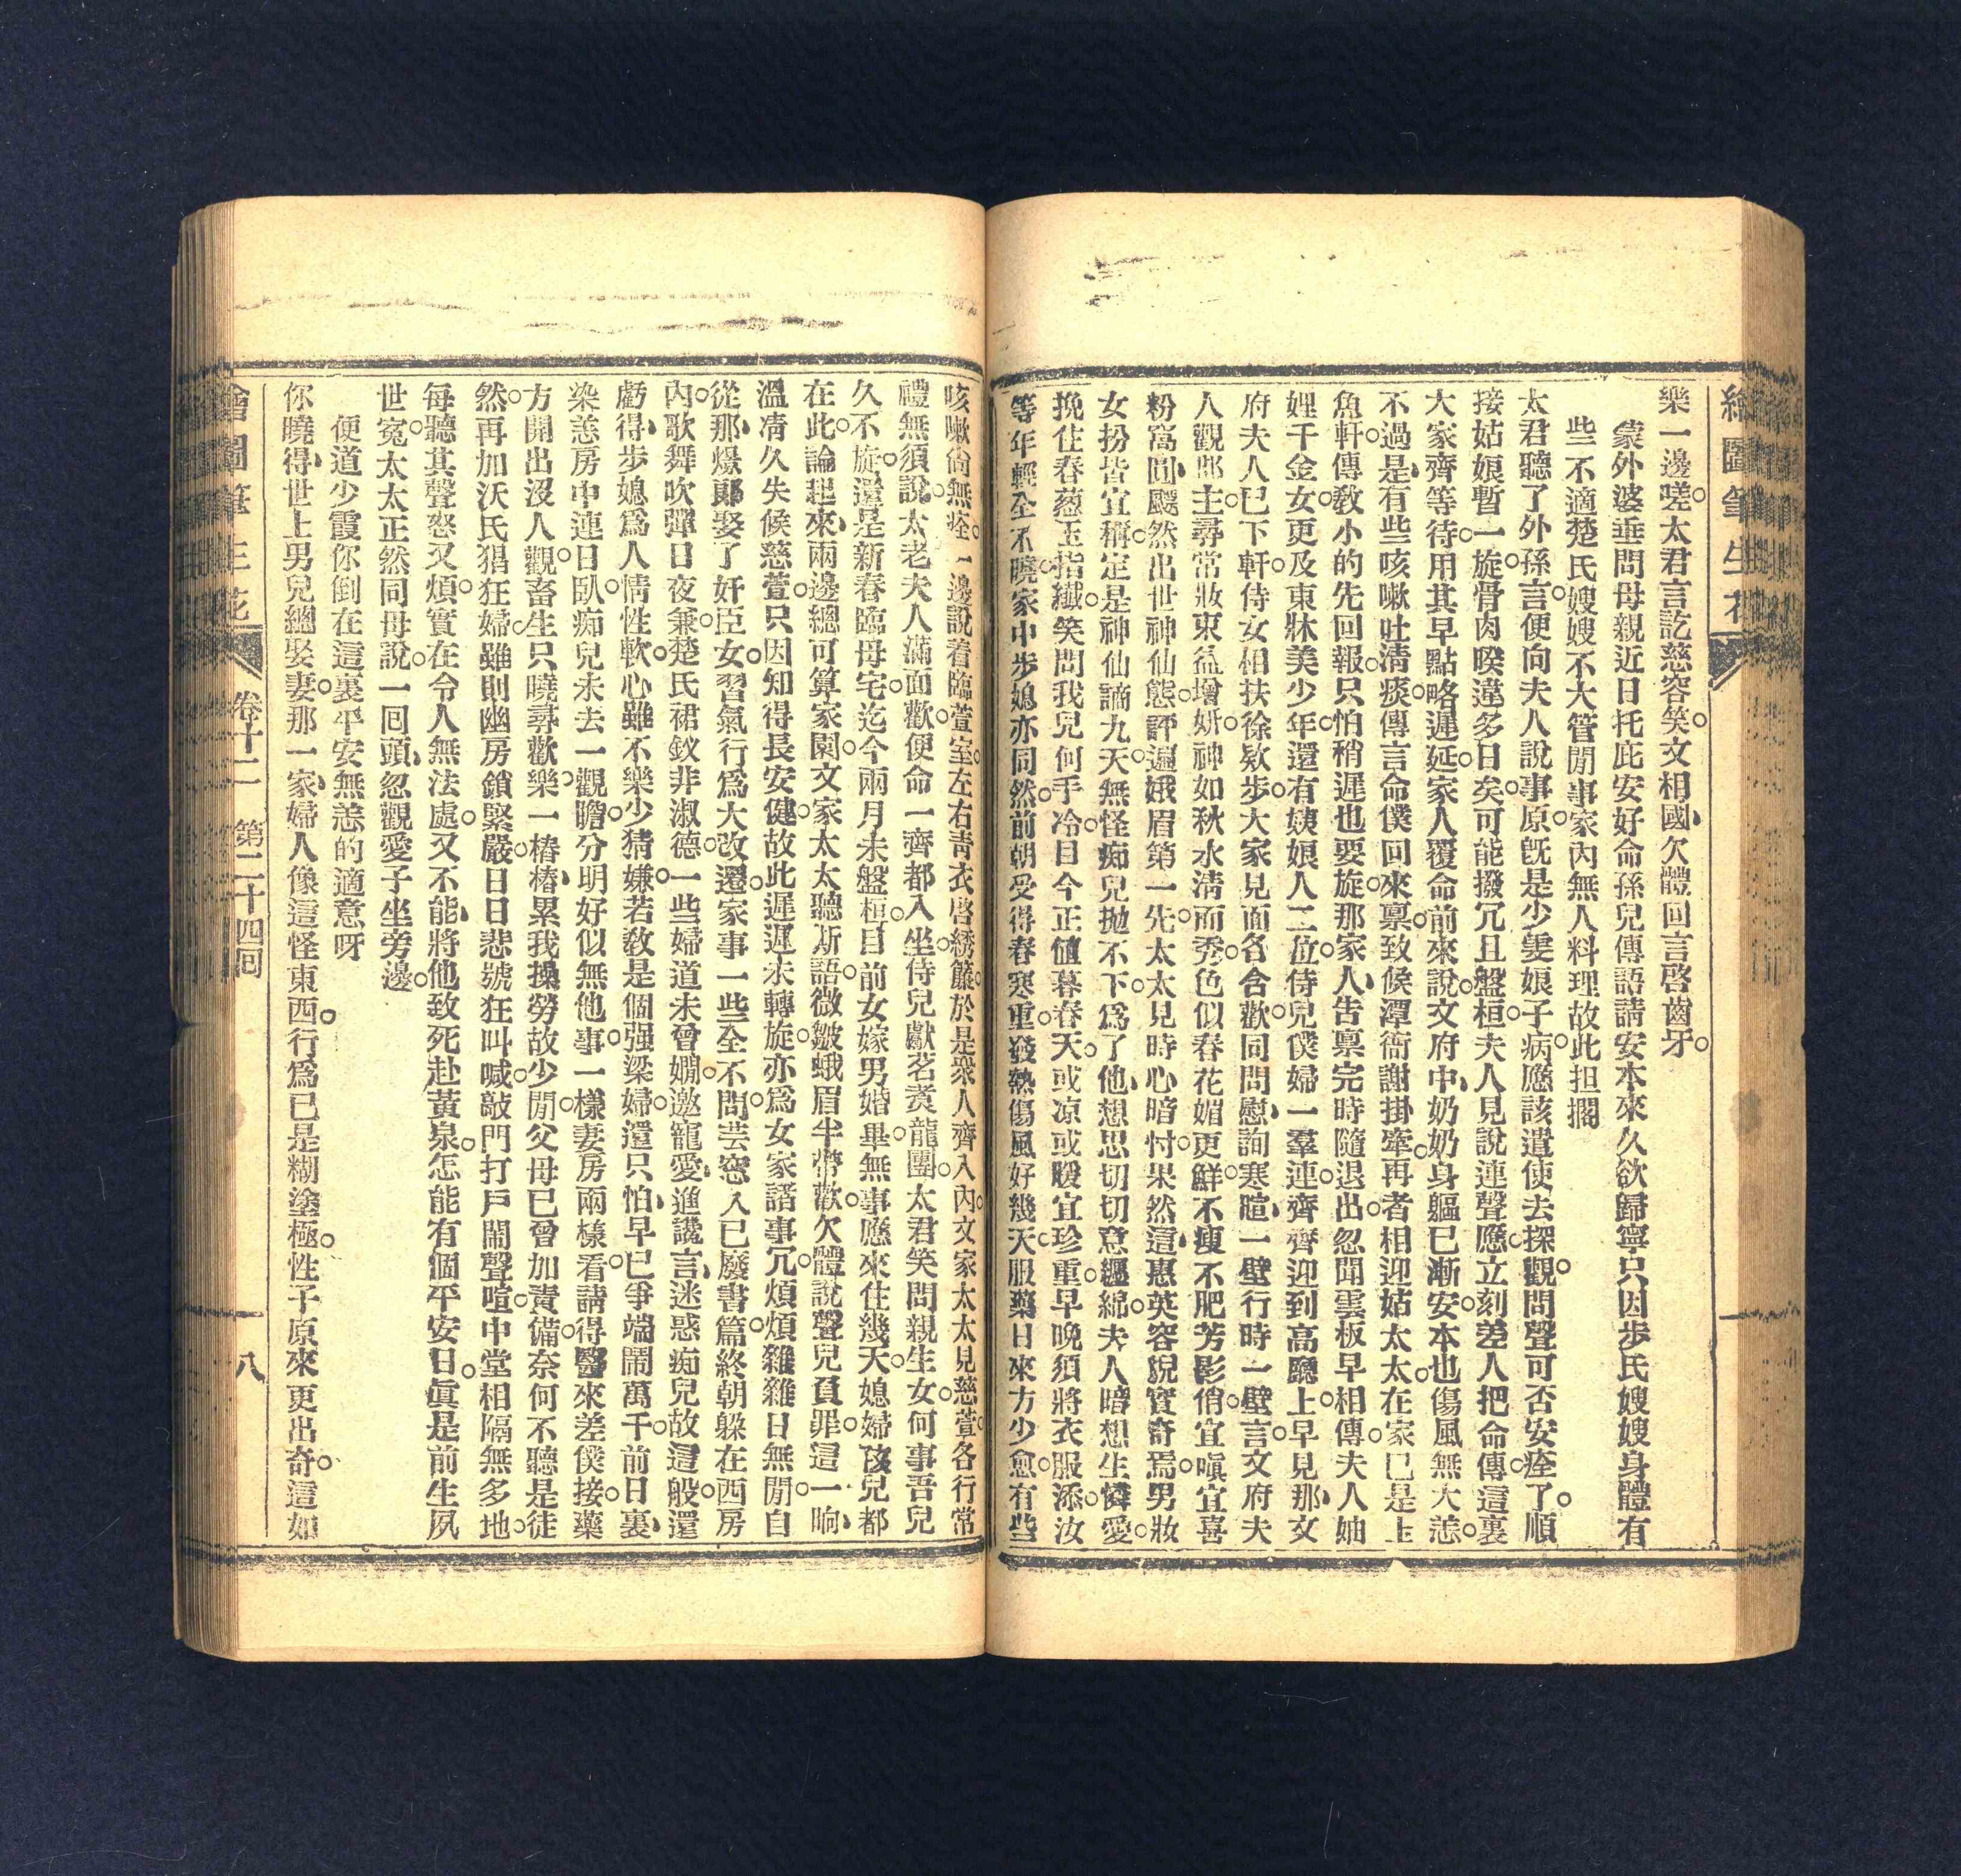 繪圖筆生花
樂一邊嗟太君言訖慈容笑文相國欠體回言啓齒牙
蒙外婆垂問母親近日托庇安好命孫兒傳語請安本來久欲歸寧只因步氏嫂嫂身體有
些不適楚氏嫂嫂不大管閒事家內無人料理故此担擱
太君聽了外孫言便向夫人說事原既是少雯娘子病應該遣使去探觀問聲可否安痊了順
接姑娘暫一旋骨肉暌違多日矣可能撥冗且盤桓夫人見說連聲應立刻差人把命傳這裏
大家齊等待用其早點略遲延家人覆命前來說文府中奶奶身軀已漸安本也傷風無大恙
不過是有些咳嗽吐清痰傳言命僕回來禀致候潭衙謝掛牽再者相迎姑太太在家已是上
魚軒傳敎小的先回報只怕稍遲也要旋那家人告禀完時隨退出忽聞雲板早相傳夫人妯
娌千金女更及東牀美少年還有姨娘人二位侍兒僕婦一羣連齊齊迎到高廳上早見那女
府夫人已下軒侍女相扶徐欵步大家見面各含歡同問慰詢寒暄一壁行時一壁言文府夫
人觀郡主尋常妝束益增妍神如秋水清而秀色似春花媚更鮮不瘦不肥芳影俏宜嗔宜喜
粉窩圓飃然出世神仙態評遍娥眉第一先太太見時心暗忖果然這惠英容貌實奇焉男妝
女扮皆宜稱定是神仙謫九天無怪痴兒拋不下爲了他想思切切意纒綿夫人暗想生憐愛
挽住春葱玉指纖笑問我兒何手冷目今正値暮春天或凉或暖宜珍重早晚須將衣服添汝
等年輕全不曉家中步媳亦同然前朝受得春寒重發熱傷風好幾天服藥日來方少愈有些
咳嗽尙無痊一邊說着臨萱室左右靑衣啓綉簾於是衆人齊入內文家太太見慈萱各行常
禮無須說太老夫人滿面歡便命一齊都入坐侍兒獻茗煑龍團太君笑問親生女何事吾兒
久不旋還是新春臨母宅迄今兩月未盤桓目前女嫁男婚畢無事應來住幾天媳婦孩兒都
在此論起來兩邊總可算家園文家太太聽斯語微皺蛾眉半帶歡欠體說聲兒負罪這一晌
溫凊久失候慈萱只因知得長安健故此遲遲未轉旋亦爲女家諸事冗煩煩雜雜日無閒自
從那爆鄭娶了奸臣女習氣行爲大改還家事一些全不問芸窓入已廢書篇終朝躱在西房
內歌舞吹彈日夜兼楚氏裙釵非淑德一些婦道未曾嫺邀寵愛進讒言迷惑痴兒故這般還
虧得步媳爲人情性軟心雖不樂少猜嫌若敎是個强梁婦還只怕早已爭端鬧萬千前日裏
染恙房中連日臥痴兒未去一觀瞻分明好似無他事一樣妻房兩樣看請得醫來差僕接藥
方開出沒人觀畜生只曉尋歡樂一樁樁累我操勞故少閒父母已曾加責備奈何不聽是徒
然再加沃氏猖狂婦雖則幽房鎖緊嚴日日悲號狂叫喊敲門打戶鬧聲喧中堂相隔無多地
每聽其聲怒又煩實在令人無法處又不能將他致死赴黃泉怎能有個平安日眞是前生夙
世寃太太正然同母說一囘頭忽觀愛子坐旁邊
便道少霞你倒在這裏平安無恙的適意呀
你曉得世上男兒總娶妻那一家婦人像這怪東西行爲已是糊塗極性子原來更出奇這如
繪圖筆生花　卷十二　第二十四回　八